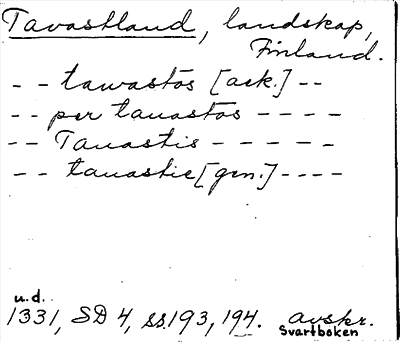 Tavastland, landskap,
Finland.
- - tawastos [ack.] - -
- - per tauastos - - - -
- - Tauastis - - - - -
- - tauastie [gen.] - - - -
u.d.
1331, SD 4, ss. 193, 194. avskr.
Svartboken